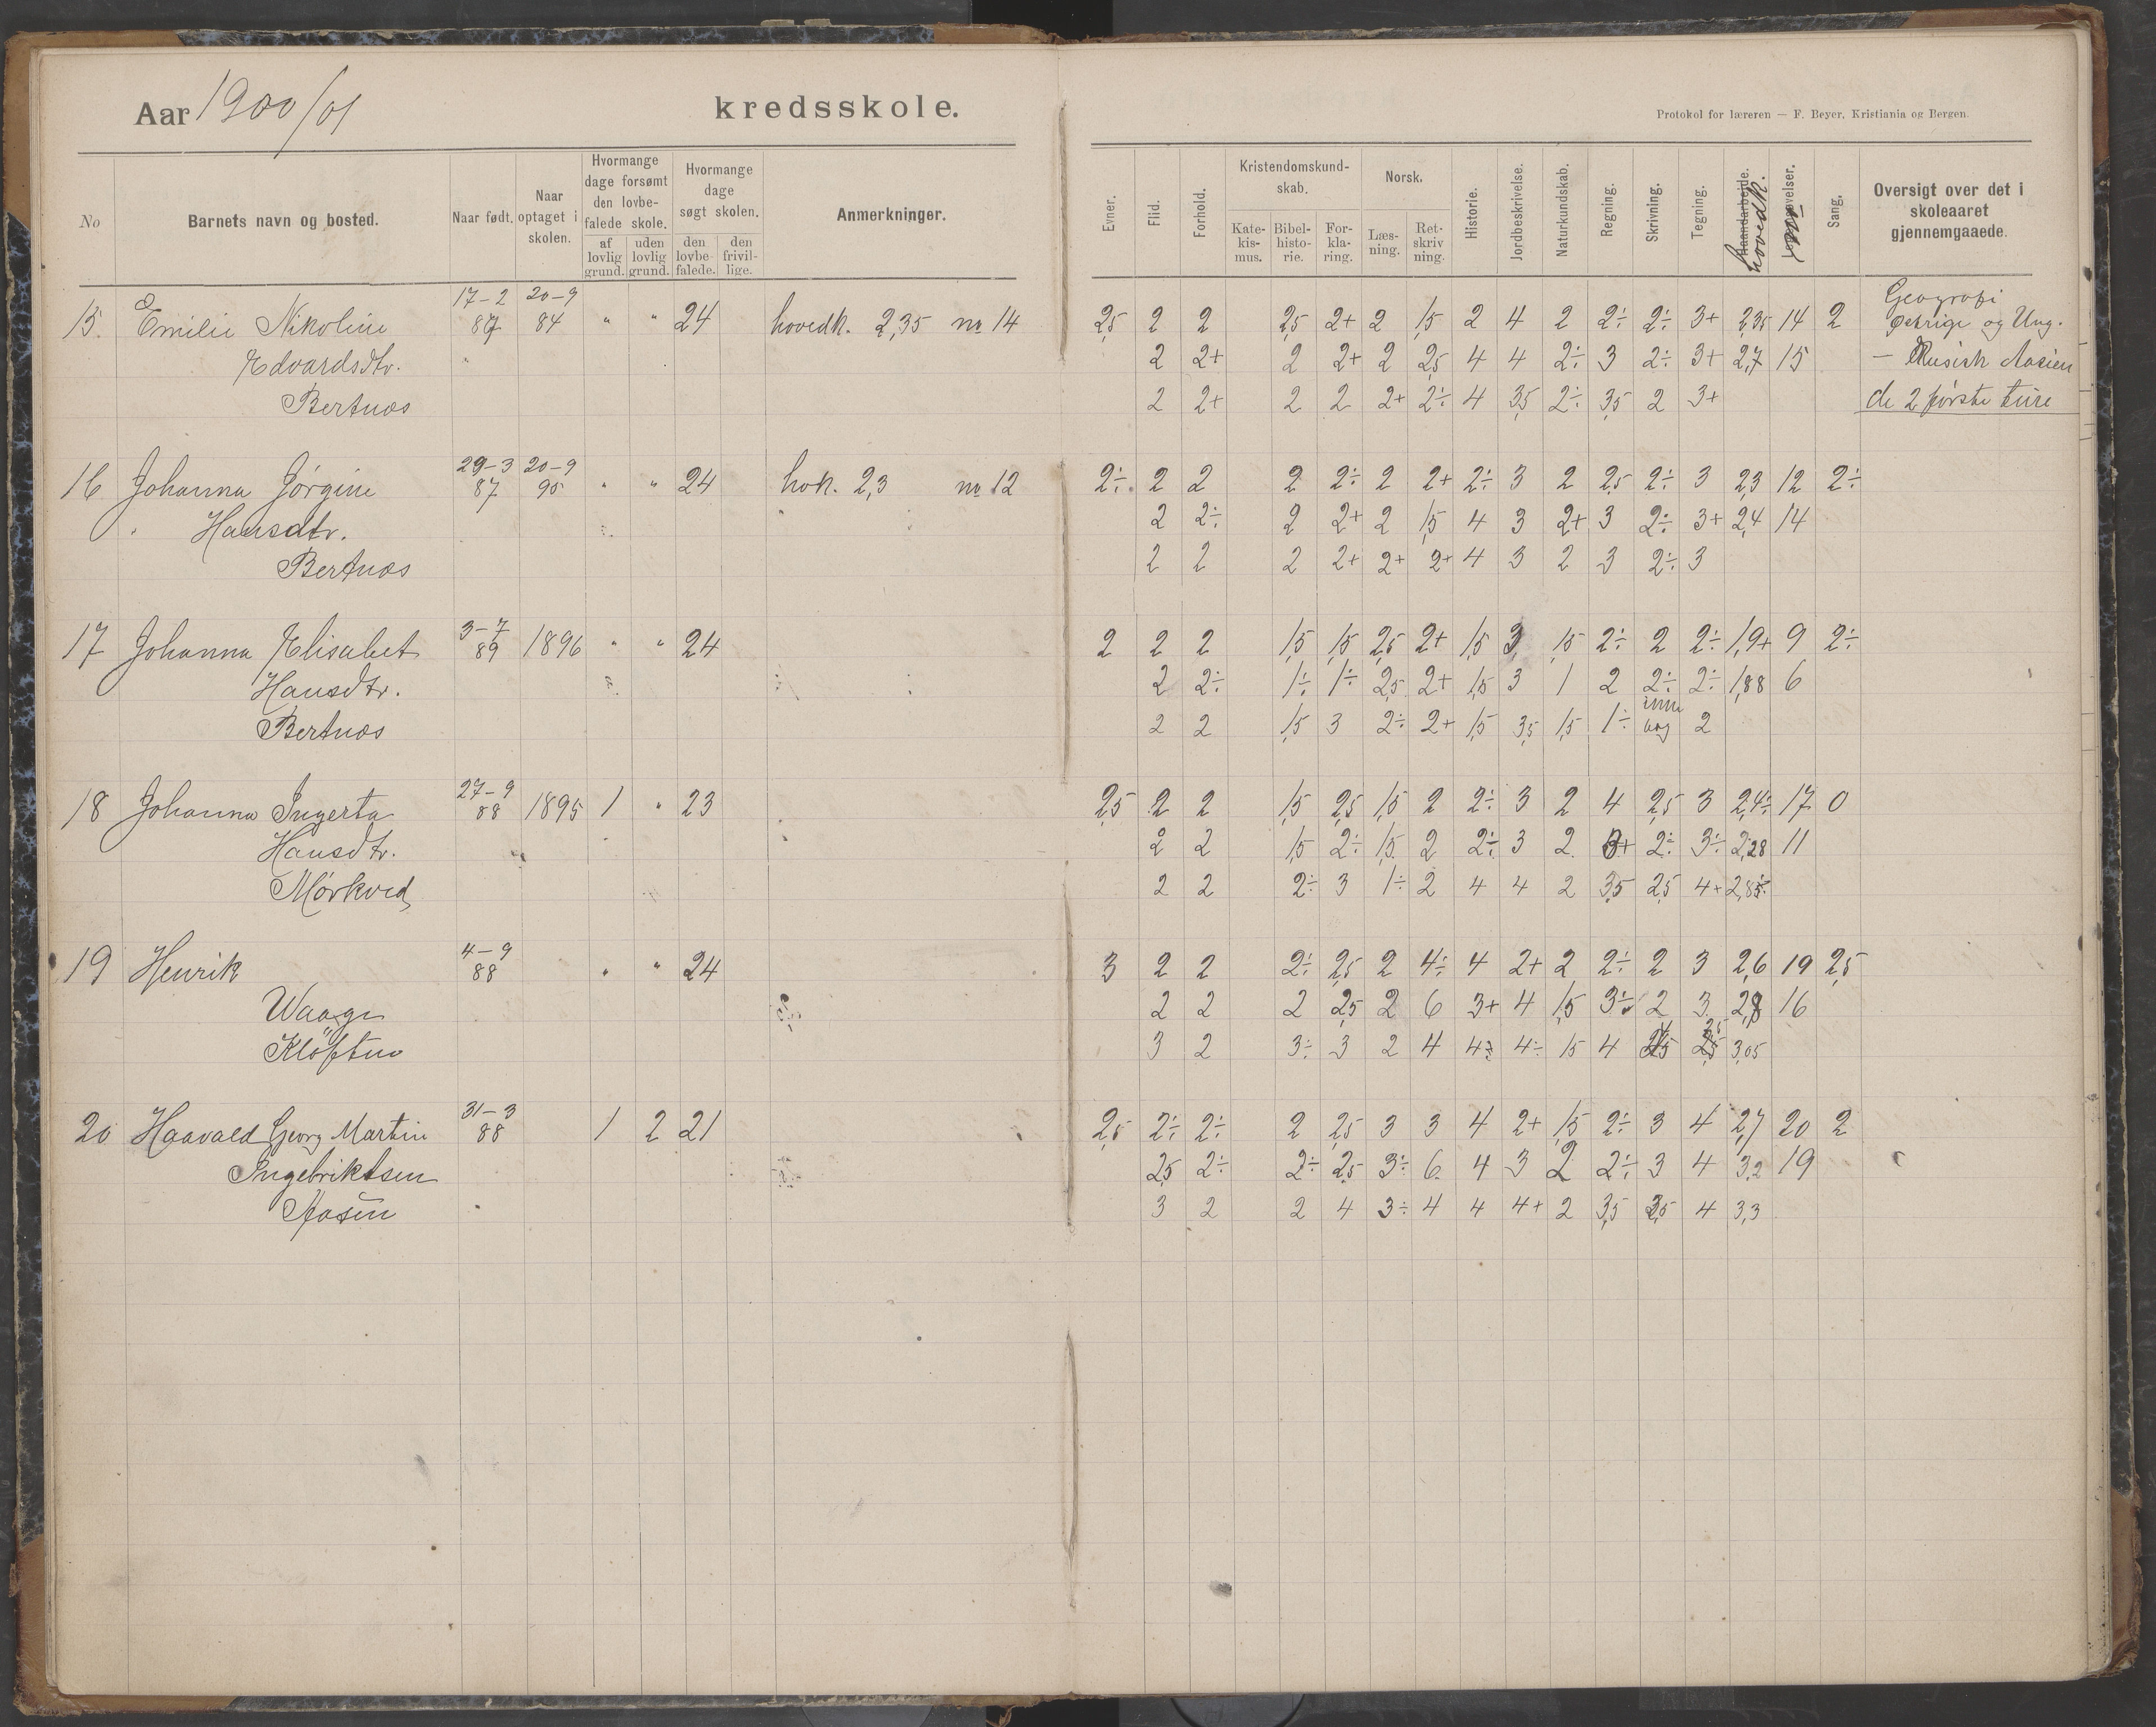 Aar 1900/01 kredsskole.
Protokol for læreren — F. Beyer, Kristiania og Bergen.
No
Barnets navn og bosted.
Naar født.
Naar optaget i skolen.
Hvormange dage forsømt den lovbefalede skole.
af lovlig grund.
uden lovlig grund.
Hvormange dage søgt skolen.
den lovbefalede.
den frivillige.
Anmerkninger.
Evner.
Flid.
Forhold.
Kristendomskundskab.
Katekismus.
Bibelhistorie.
Forklaring.
Norsk.
Læsning.
Retskrivning.
Historie.
Jordbeskrivelse.
Naturkundskab.
Regning.
Skrivning.
Tegning.
Haandarbejde. hovedk.
Sang.
Oversigt over det i skoleaaret gjennemgaaede.
17-2 20-9 Geografi
15. Emilie Nikoline 87 84 " " 24 hovedk. 2,35 no 14 2,5 2 2 2,5 2+ 2 1,5 2 4 2 2÷ 2÷ 3+ 2,35 14 2 Østrige og Ung.
Edvardsdtr. 2 2+ 2 2+ 2 2,5 4 4 2÷ 3 2÷ 3+ 2,7 15 — Rusish Aasien
Bertnæs 2 2+ 2 2 2+ 2÷ 4 3,5 2÷ 3,5 2 3+ de 2 første ture
29-3 20-9
16 Johanna Jørgine 87 95 " " 24 hok. 2,3 no 12 2÷ 2 2 2 2÷ 2 2+ 2÷ 3 2 2,5 2÷ 3 2,3 12 2÷
Hansdtr. 2 2÷ 2 2+ 2 1,5 4 3 2+ 3 2÷ 3+ 2,4 14
Bertnæs 2 2 2 2+ 2+ 2+ 4 3 2 3 2÷ 3
3-7
17 Johanna Elisabet 89 1896 " " 24 2 2 2 1,5 1,5 2,5 2+ 1,5 3 1,5 2÷ 2 2÷ 1,9+ 9 2÷
Hansdtr. 2 2÷ 1÷ 1÷ 2,5 2+ 1,5 3 1 2 2÷ 2÷ 1,88 6
Bertnæs 2 2 1,5 3 2÷ 2+ 1,5 3,5 1,5 1÷ 2
27-9
18 Johanna Ingerta 88 1895 1 " 23 2,5 2 2 1,5 2,5 1,5 2 2÷ 3 2 4 2,5 3 2,4÷ 17 0
Hansdtr. 2 2 1,5 2÷ 1,5 2 2÷ 3 2 3+ 2÷ 3÷ 2,28 11
Mørkved 2 2 2÷ 3 1÷ 2 4 4 2 3,5 2,5 4+ 2,85÷
4-9
19 Henrik 88 " " 24 3 2 2 2÷ 2,5 2 4÷ 4 2+ 2 2÷ 2 3 2,6 19 2,5
Waage 2 2 2 2,5 2 6 3+ 4 1,5 3÷ 2 3 2,8 16
Kløften 3 2 3÷ 3 2 4 4÷ 4÷ 1,5 4 3,05
31-3
20 Haavald Georg Martin 88 1 2 21 2,5 2÷ 2÷ 2 2,5 3 3 4 2+ 1,5 2÷ 3 4 2,7 20 2
Ingebriktsen 2,5 2÷ 2÷ 2,5 3÷ 6 4 3 2 2÷ 3 4 3,2 19
Aasen 3 2 2 4 3÷ 4 4 4+ 2 3,5 3,5 4 3,3